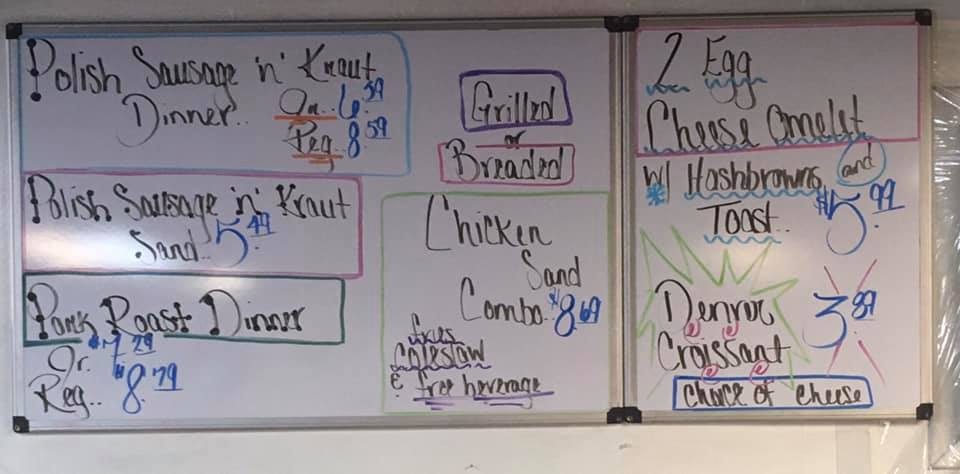 Polish Sausage 'n' Kraut
Dinner.. Jr.. 6.59
Reg.. 8.59
Polish Sausage 'n' Kraut
Sand.. 5.49
Pork Roast Dinner
Jr. $7.29
Reg.. $8.79
Grilled
or
Breaded
Chicken
Sand
Combo.. $8.69
fries
coleslaw
& free beverage
2 Egg
Cheese Omelet
w/ Hashbrowns and
Toast.. $5.99
Denver
Croissant 3.89
choice of cheese